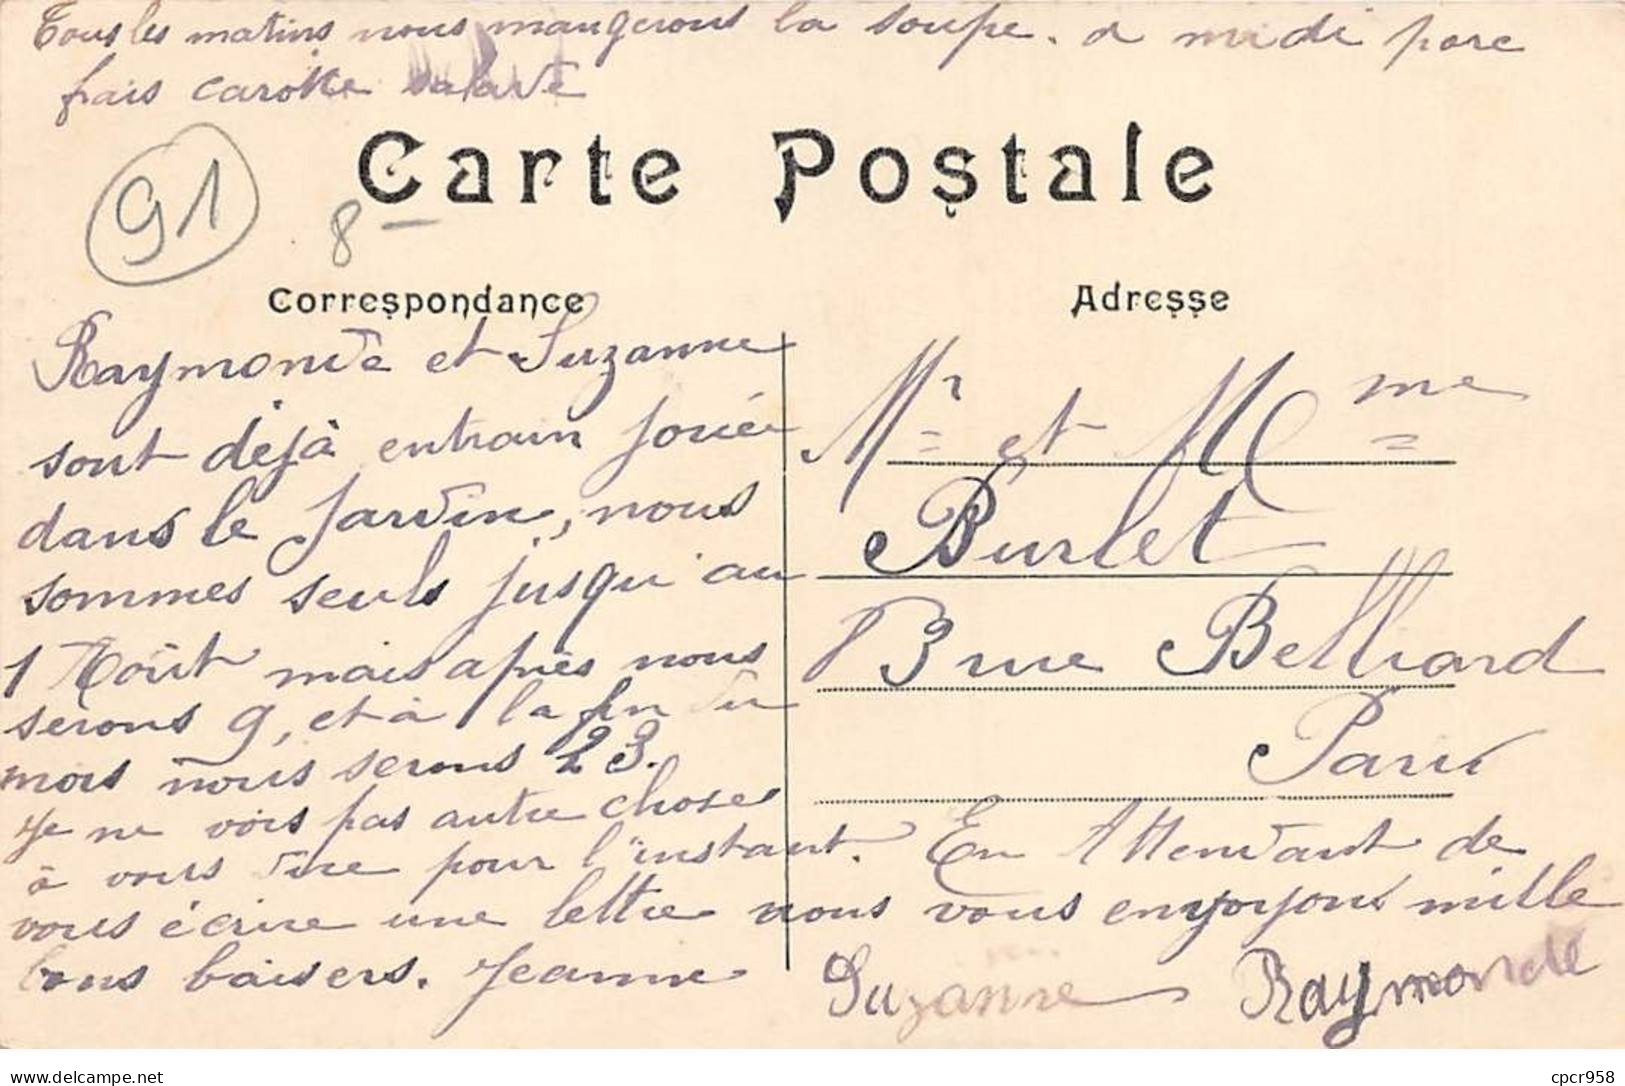 Tous les matins nous mangerons la soupe. a midi porc
frais carotte salade
Carte Postale
91
8
Correspondance
Adresse
Raymonde et Suzanne
sont déjà entrain jouée
dans le jardin, nous
sommes seuls jusqu'au
1 Août mais après nous
serons 9, et à la fin du
mois nous serons 23.
Je ne vois pas autre choses
à vous dire pour l'instant. En Attendant de
vous écrire une lettre nous vous envoyons mille
bons baisers. Jeanne
Suzanne Raymonde
Mr et Mme
Burlet
13 rue Belliard
Paris
delcampe.net
cpcr958